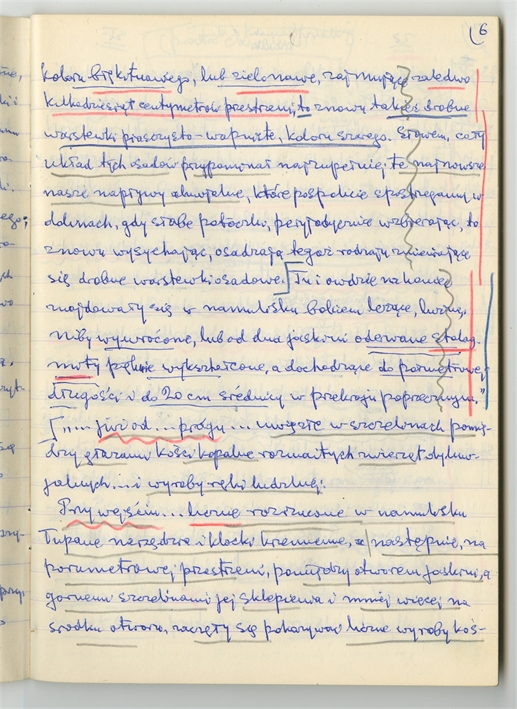 6
koloru błękitnawego, lub zielonawe, zajmujące zaledwo
kilkadziesiąt centymetrów przestrzeni, to znowu takież drobne
warstewki piasczysto-wapniste, koloru szarego. Słowem, cały
układ tych osadów przypominał najzupełniej te najnowsze
nasze napływy aluwialne, które pospolicie spostrzegamy w
dolinach, gdy słabe potoczki, peryjodycznie wzbierając, to
znowu wysychając, osadzają tegoż rodzaju zmieniające
się drobne warstewki osadowe. Tu i owdzie na koniec
znajdowały się w namulisku bokiem leżące, luźne,
niby wywrócone, lub od dna jaskini oderwane stalag-
mity pięknie wykształcone, a dochodzące do parumetrowej
długości i do 20 cm średnicy w przekroju poprzecznym."
"... już od ... progu ... uwięzłe w szczelinach pomię-
dzy głazami kości kopalne rozmaitych zwierząt dyluw-
jalnych ... i wyroby ręki ludzkiej.
Przy wejściu ... licznie rozrzucone w namulisku
łupane narzędzia i klocki krzemienne, a następnie, na
parumetrowej przestrzeni, pomiędzy otworem jaskini, a
górnemi szczelinami jej sklepienia i mniej więcej na
środku otworu, zaczęły się pokazywać liczne wyroby koś-